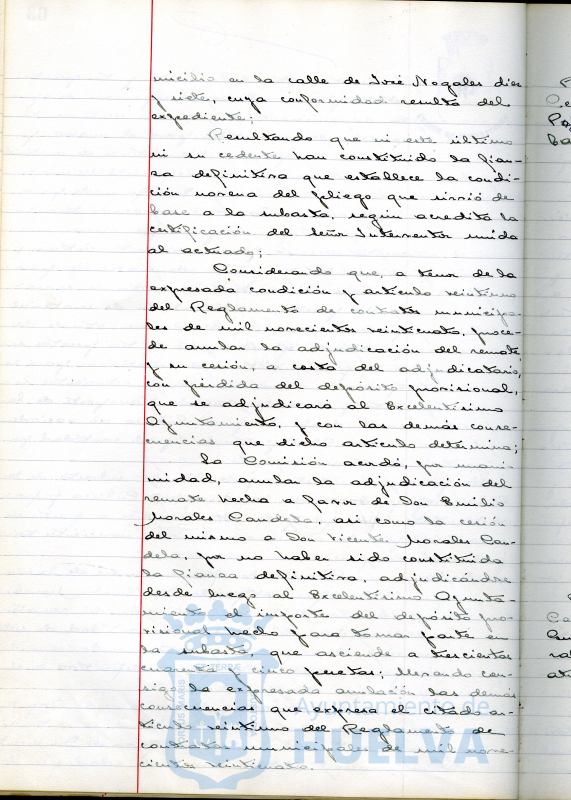 micilio en la calle de José Nogales diez
y siete, cuya conformidad resulta del
expediente;
Resultando que ni este último
ni su cedente han constituido la fian-
za definitiva que establece la condi-
ción novena del pliego que sirvió de
base a la subasta, según acredita la
certificación del Señor Interventor unida
al actuado;
Considerando que, a tenor de la
expresada condición y artículo veintiuno
del Reglamento de contratos municipa-
les de mil novecientos veinticuatro, proce-
de anular la adjudicación del remate
y su cesión, a costa del adjudicatario,
con pérdida del depósito provisional,
que se adjudicará al Excelentísimo
Ayuntamiento, y con las demás conse-
cuencias que dicho artículo determina;
La Comisión acordó, por unani-
midad, anular la adjudicación del
remate hecha a favor de Don Emilio
Morales Candela, así como la cesión
del mismo a Don Vicente Morales Can-
dela, por no haber sido constituida
la fianza definitiva, adjudicándose
desde luego al Excelentísimo Ayunta-
miento el importe del depósito pro-
visional hecho para tomar parte en
la subasta que asciende a trescientas
cuarenta y cinco pesetas; llevando con-
sigo la expresada anulación las demás
consecuencias que expresa el citado ar-
tículo veintiuno del Reglamento de
contratos municipales de mil nove-
cientos veinticuatro.
Ayuntamiento de
HUELVA